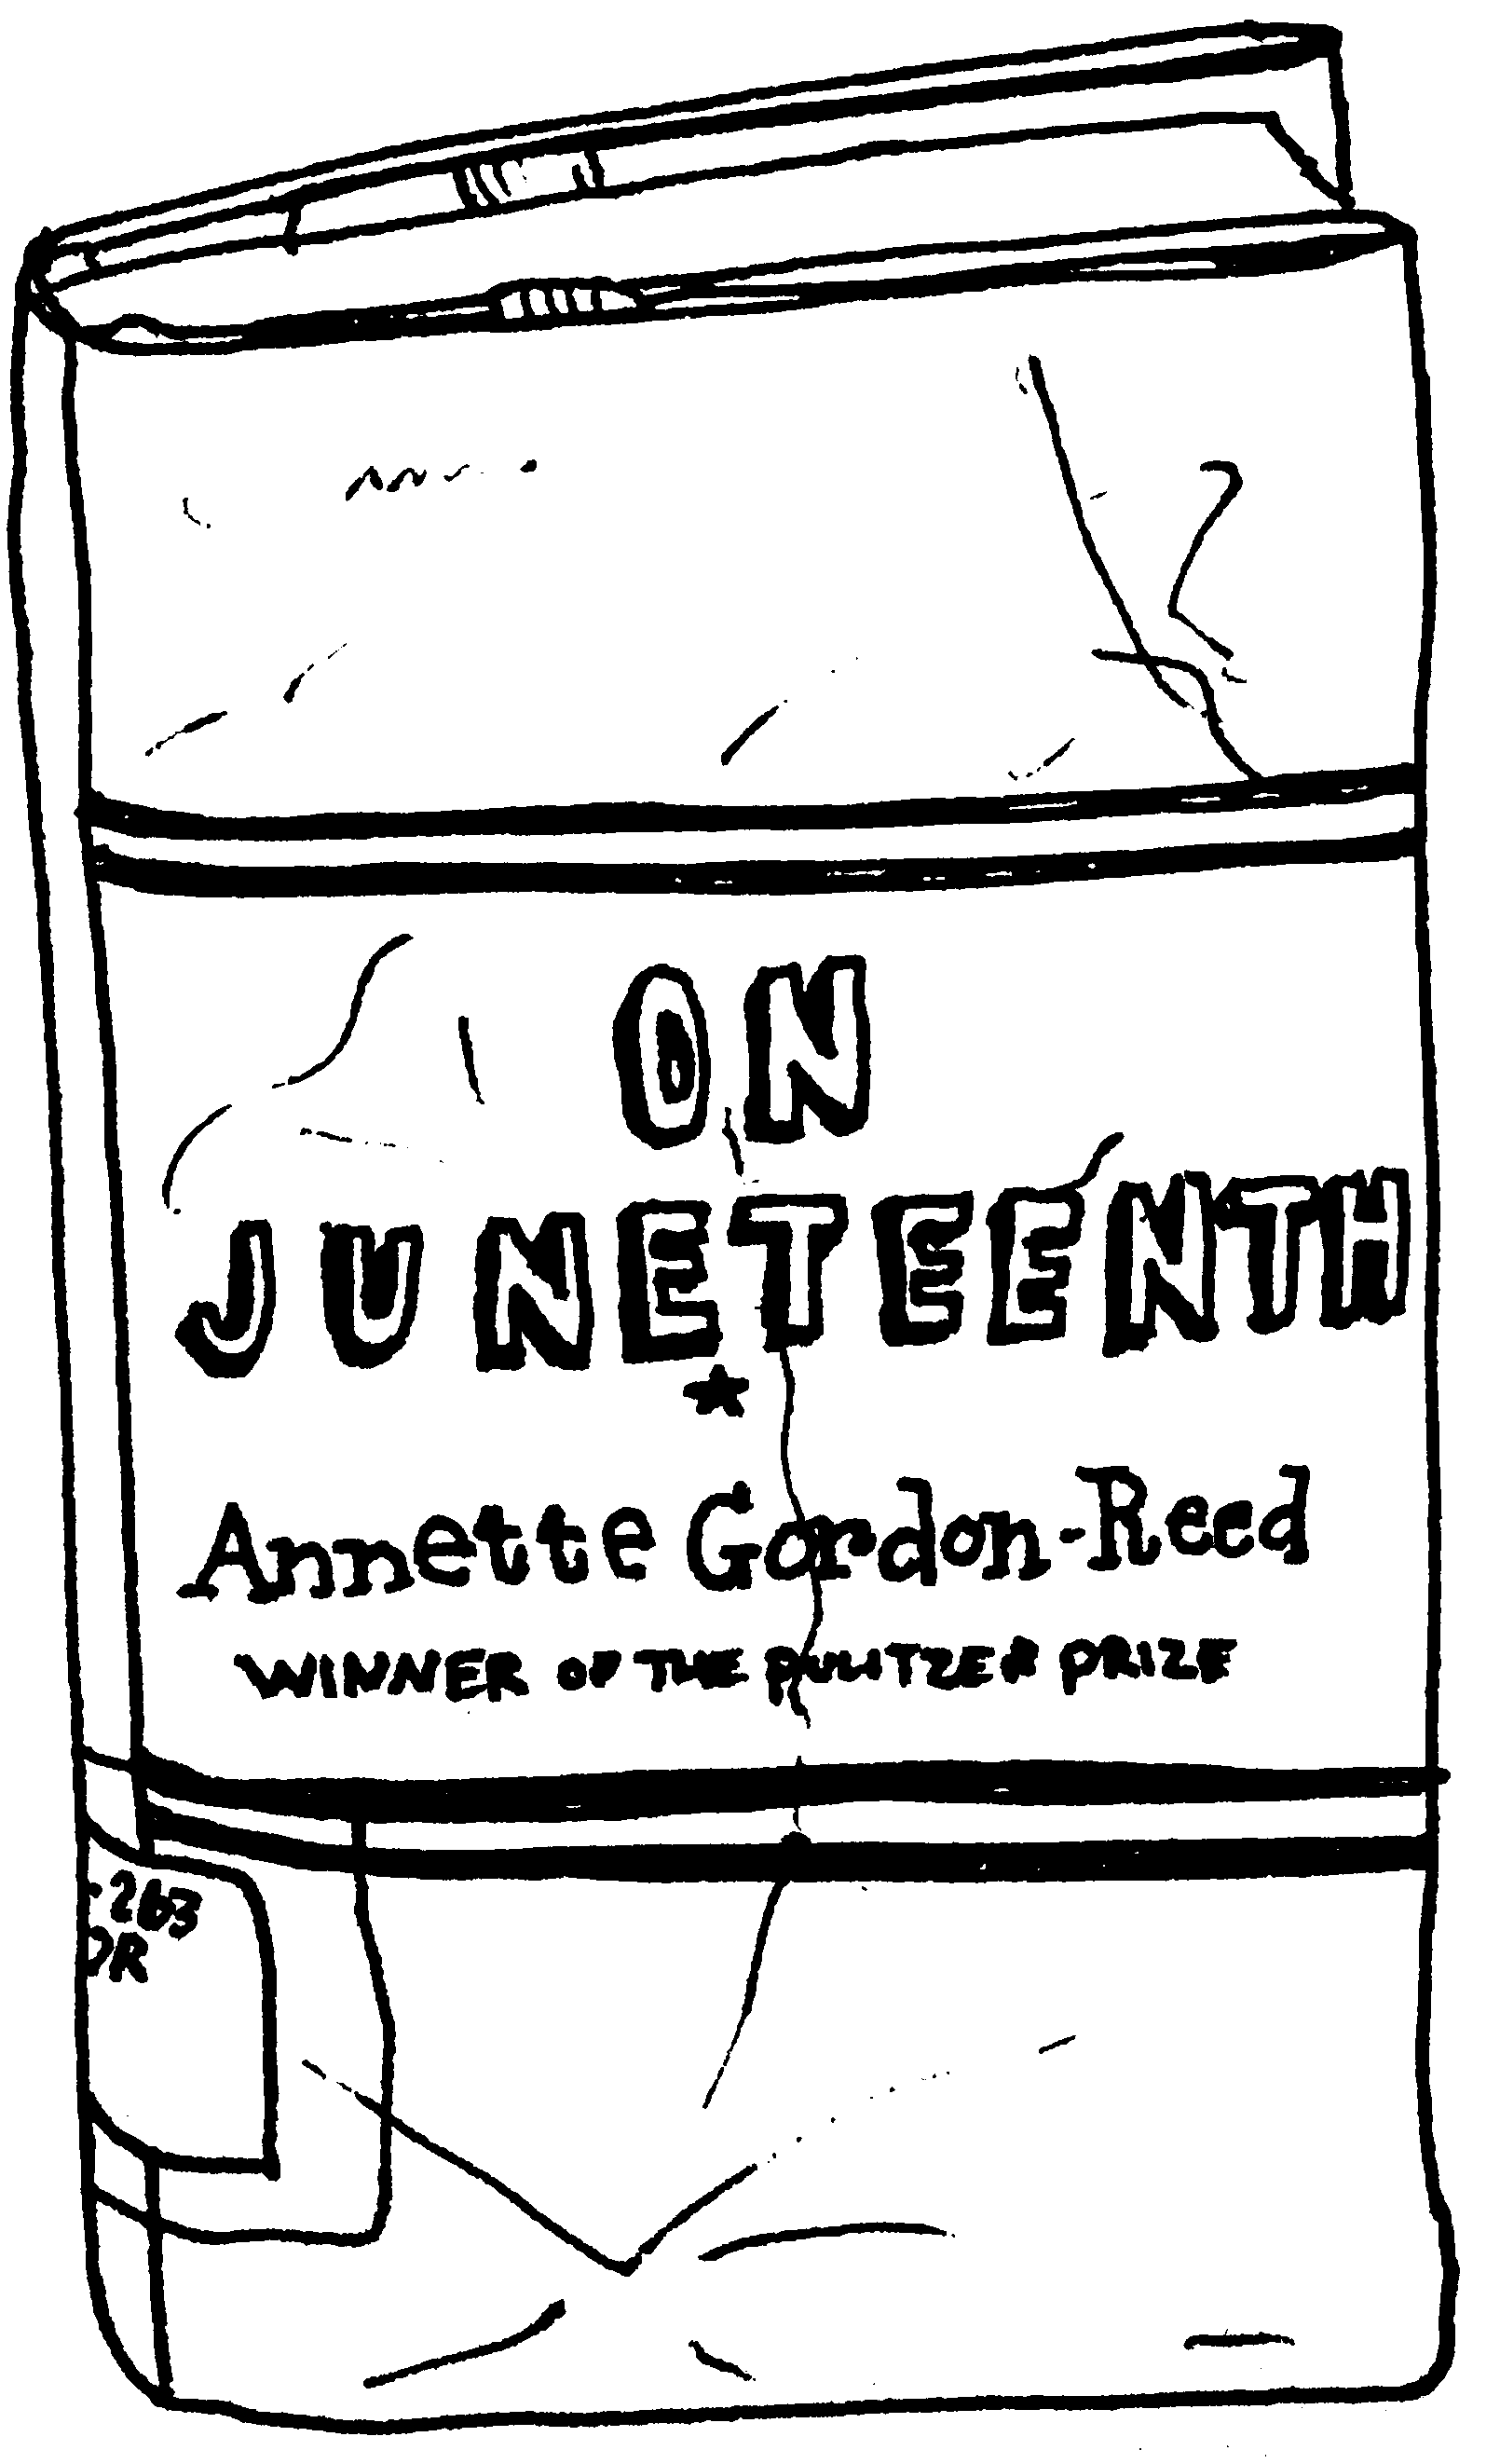 ON
JUNETEENTH
Annette Gordon-Reed
WINNER OF THE PULITZER PRIZE
-263
OR